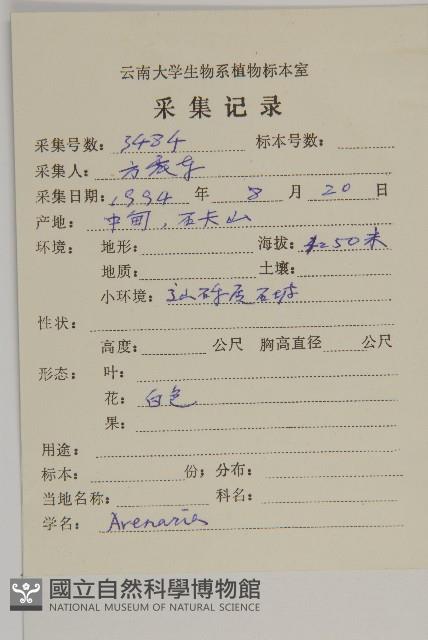 云南大学生物系植物标本室
采集记录
采集号数: 3484 标本号数:
采集人: 方震东
采集日期: 1994 年 8 月 20 日
产地: 中甸,石卡山
环境: 地形: 海拔: 50米
地质: 土壤:
小环境: 山砾质石坡
性状:
高度: 公尺 胸高直径 公尺
形态: 叶:
花: 白色
果:
用途:
标本: 份; 分布:
当地名称: 科名:
学名: Arenaria
國立自然科學博物館
NATIONAL MUSEUM OF NATURAL SCIENCE